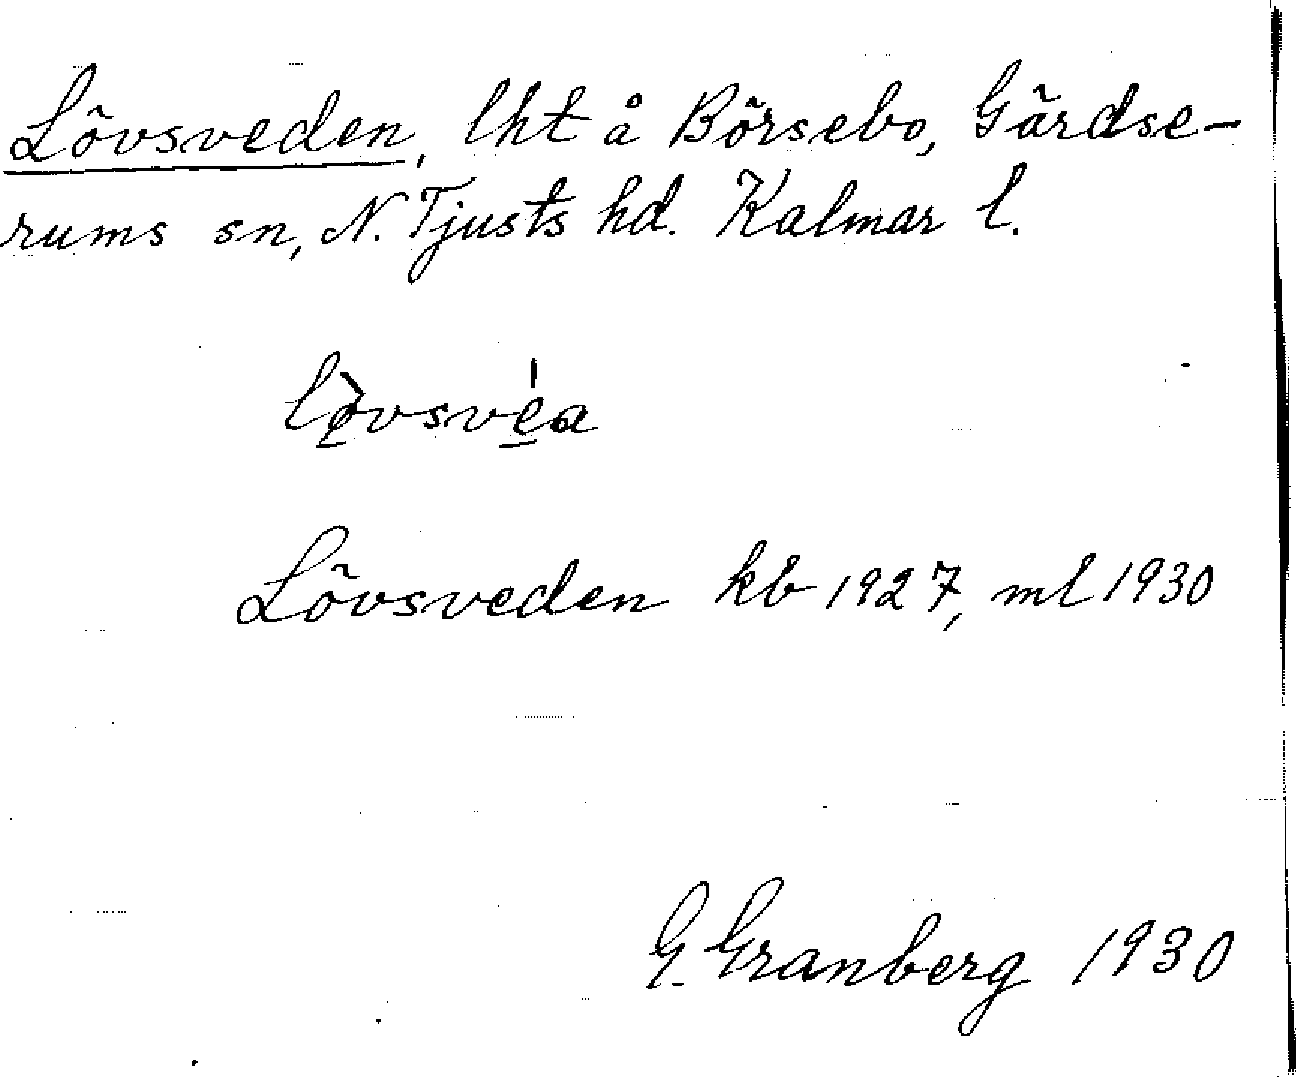 Lövsveden, lht å Börsebo, Gärdse-
rums sn, N. Tjusts hd. Kalmar l.
lòvsvéa
Lövsveden kb 1927, ml 1930
G. Granberg 1930